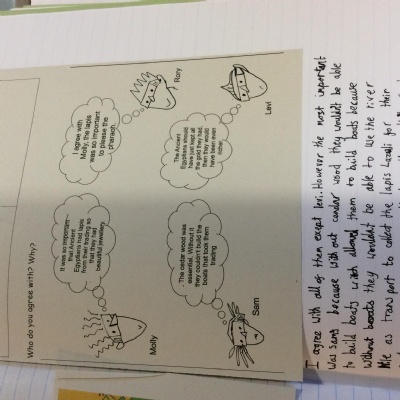 Who do you agree with? Why?
It was so important
that Ancient
Egyptians had lapis
from their trading so
that they had
beautiful jewellery.
Molly
I agree with
Molly, the lapis
was so important
to please the
pharaoh.
Rory
The cedar wood was
essential. Without it
they couldn't build the
boats that took them
trading
Sam
The Ancient
Egyptians should
have just kept all
the gold they had,
then they would
have been even
richer.
Levi
I agree with all of them except levi. However the most important
was sams because with out cedar wood they wouldn't be able
to build boats witch allowed them to build boats because
without boats they wouldn't be able to use the river
as transport to collect the lapis Lazuli for their